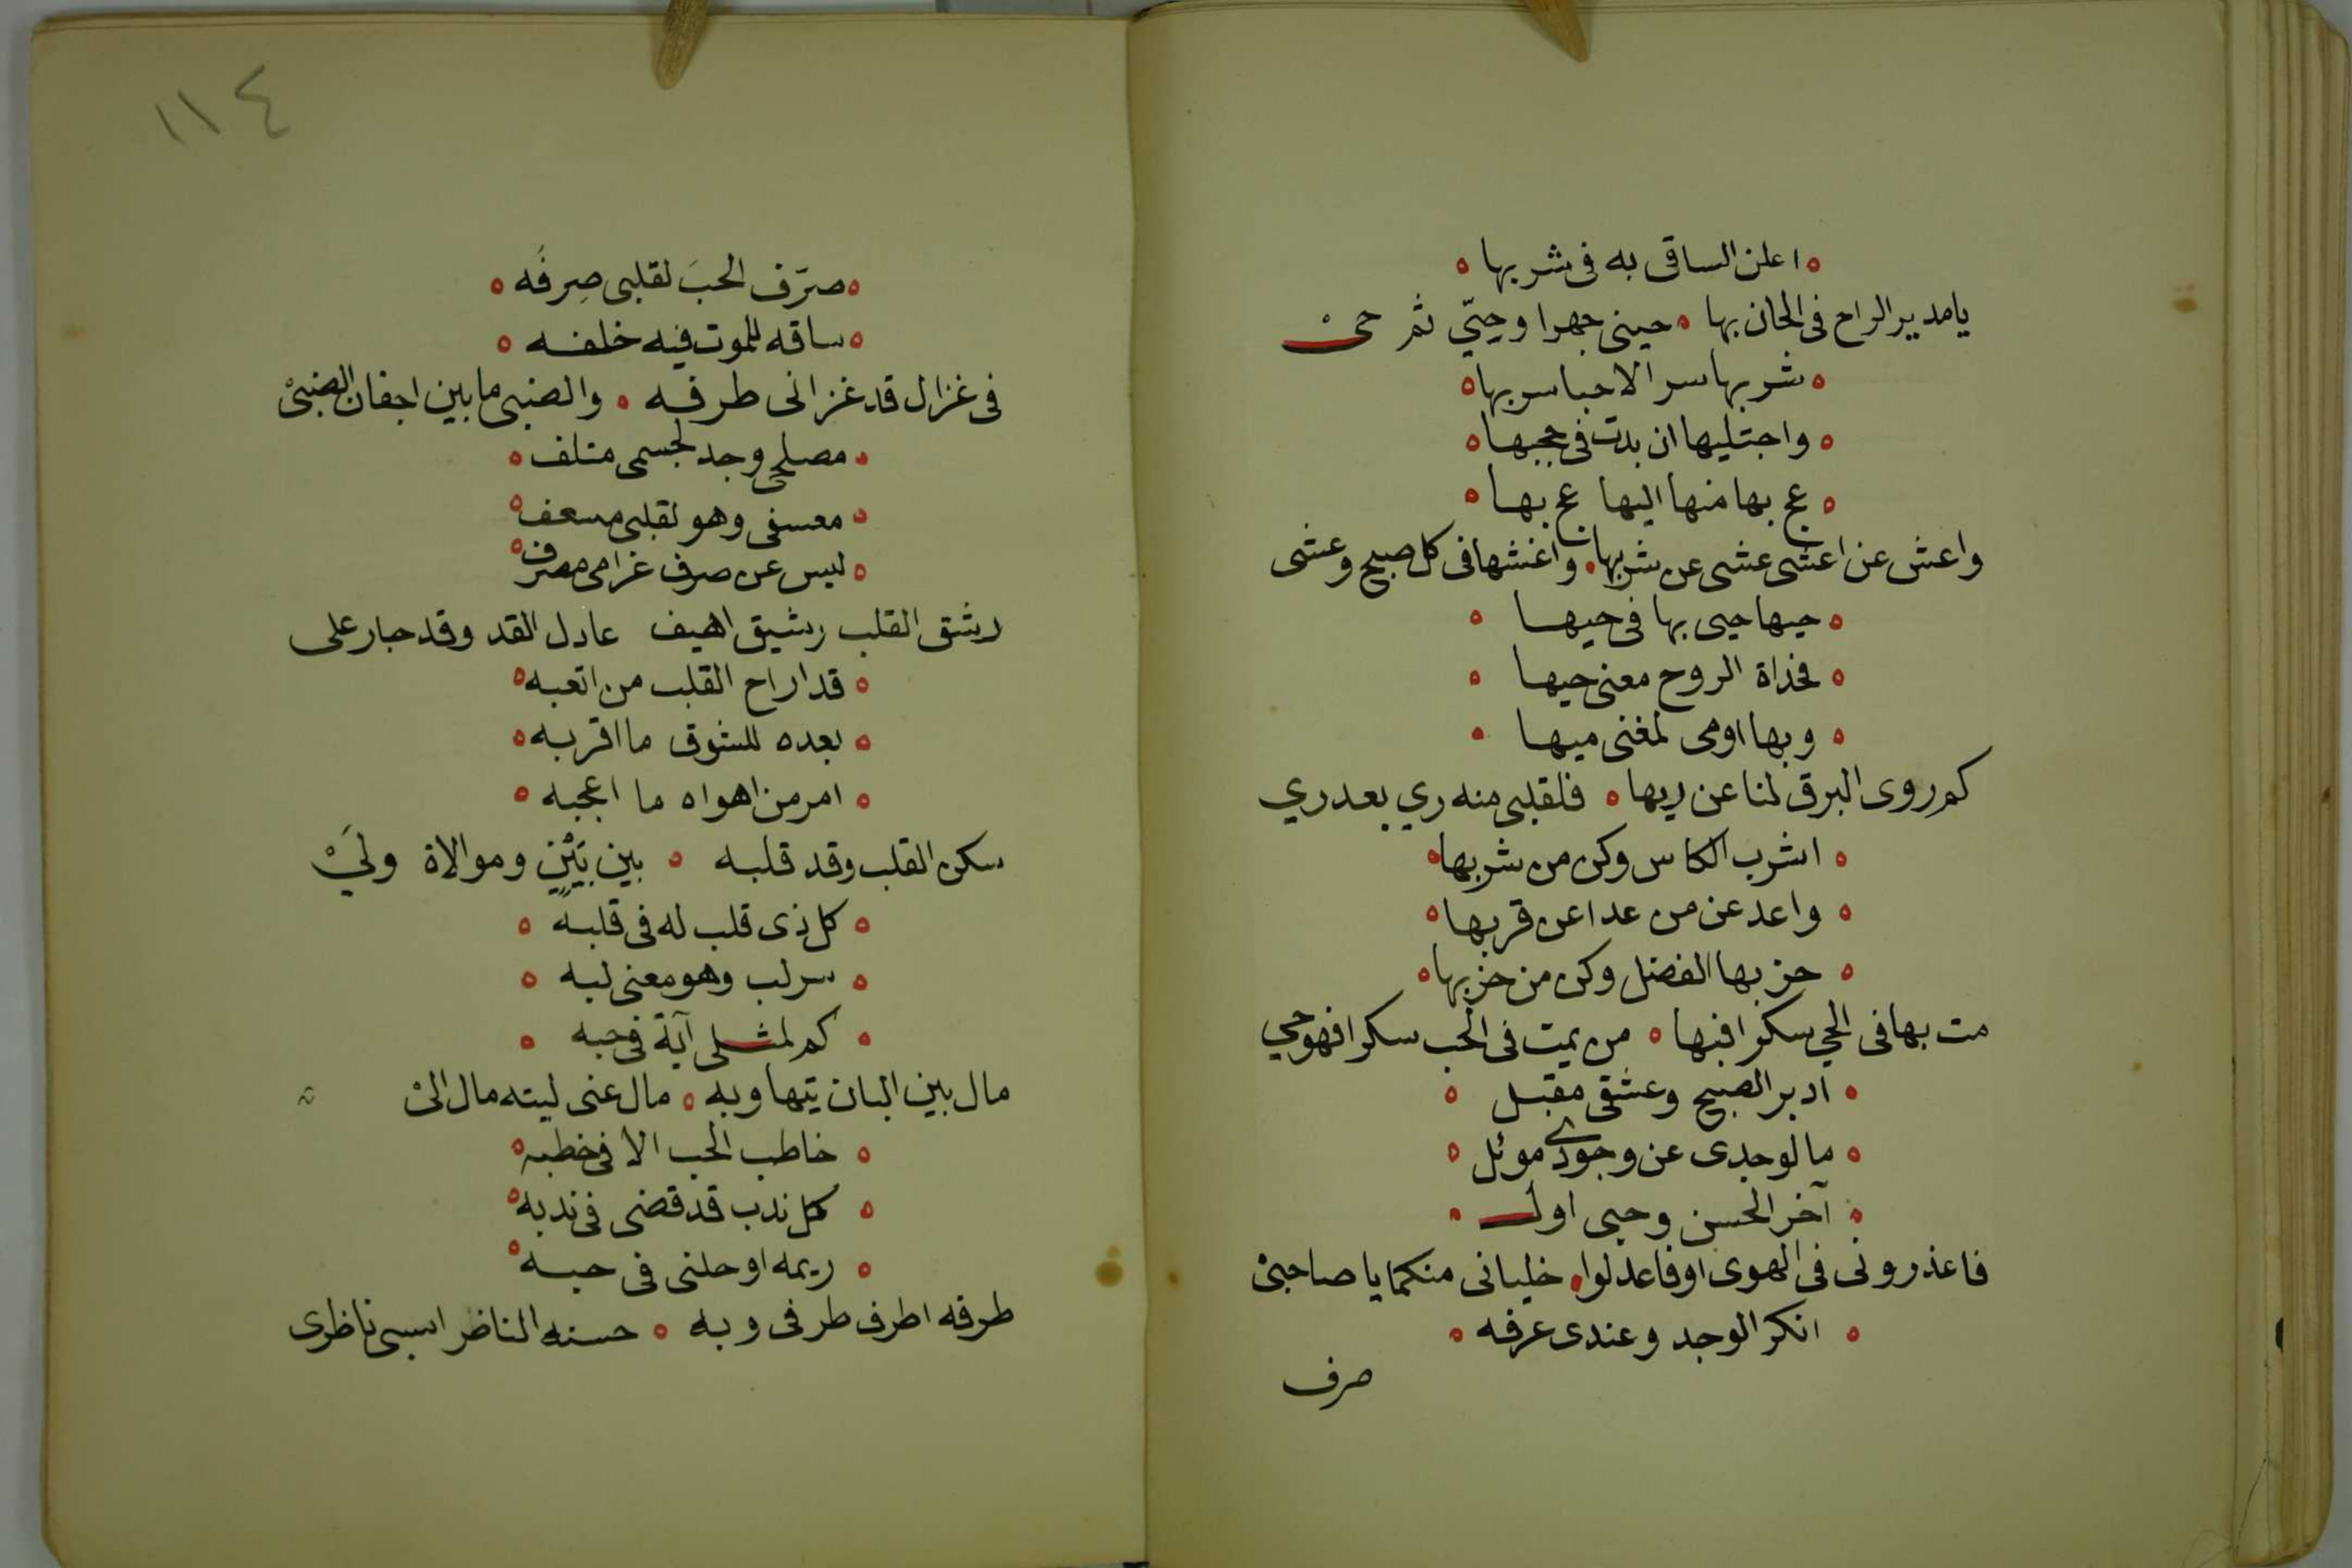 اعلن الساقى به فى شربها
يا مدير الراح فى الحان بها ه حينى جهرا وحيّي ثم حى
شربها سر الاحبا سر بها
واجتليها ان بدت فى حجبها
عج بها منها اليها عج بها
واعش عن اعشى عشى عن شربها ه واغشها فى كل صبح وعشى
حيها حيى بها فى حيها
فحذاة الروح معنى حيها
وبها اومى لمغنى ميها
كم روى البرق لنا عن ريها ه فلقلبى منه ري بعد ري
اشرب الكاس وكن من شربها
واعد عن من عدا عن قربها
حز بها الفضل وكن من حزبها
مت بها فى الحي سكرا فبها ه من يمت فى الحب سكرا فهو حي
ادبر الصبح وعشقى مقبل
ما لوجدى عن وجودى موئل
آخر الحسن وحبى اول
فاعذرونى فى الهوى او فاعدلوا ه خليانى منكما يا صاحبى
انكر الوجد وعندى عرفه
صرف
١١٤
صرّف الحبَ لقلبى صِرفُه
ساقه للموت فيه خلفه
فى غزال قد غزانى طرفه ه والضبى ما بين اجفان الضبىْ
مصلحى وجد لجسمى متلف
معسفى وهو لقلبى مسعف
ليس عن صرف غرامى مصرف
رشق القلب رشيق اهيف عادل القد وقد جار على
قد اراح القلب من اتعبه
بعده للشوق ما اقربه
امر من اهواه ما اعجبه
سكن القلب وقد قلبه ه بين بَيْنٍ وموالاة ولَيْ
كل ذى قلب له فى قلبه
سر لب وهو معنى لبه
كم لمثلى آية فى حبه
مال بين البان تيها وبه ه مال عنى ليته مال الىْ
خاطب الحب الا فى خطبه
كل ندب قد قضى فى ندبه
ريمه اوحلنى فى حبه
طرفه اطرف طرفى وبه ه حسنه الناظر اسبى ناظرى